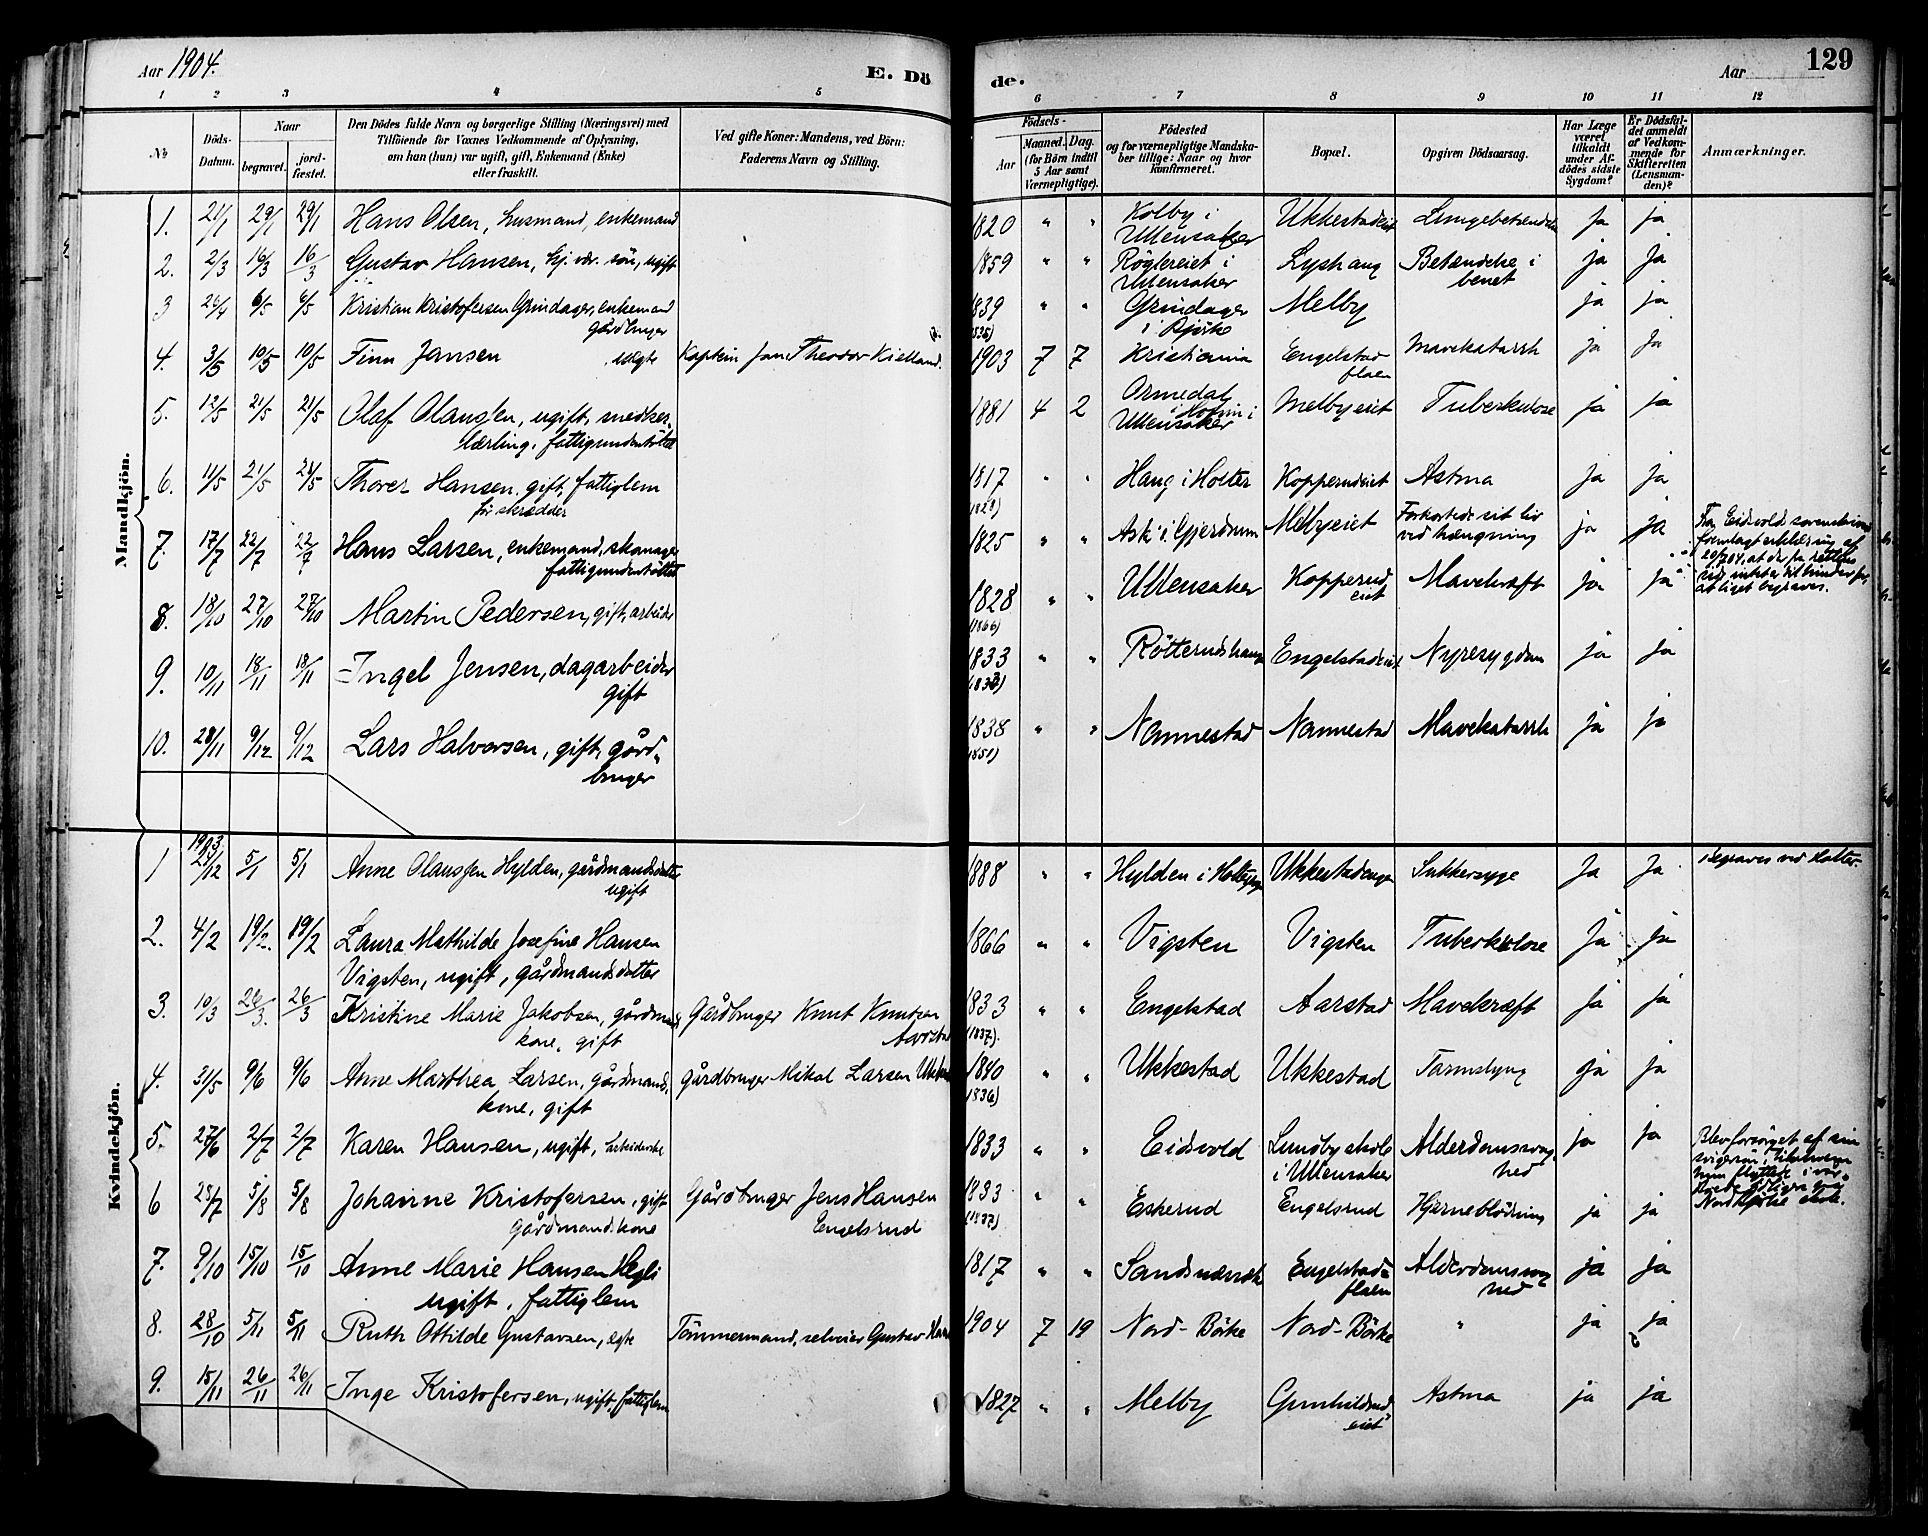 Aar 1904.
E. Dö
de.
Aar
129
1 2 3 4 5 6 7 8 9 10 11 12
No
Döds-
Datum.
Naar
begravet.
jord-
fæstet.
Den Dödes fulde Navn og borgerlige Stilling (Næringsvei) med
Tilföiende for Voxnes Vedkommende af Oplysning,
om han (hun) var ugift, gift, Enkemand (Enke)
eller fraskilt.
Ved gifte Koner: Mandens, ved Börn:
Faderens Navn og Stilling.
Födsels-
Aar
Maaned. Dag.
(for Börn indtil
5 Aar samt
Værnepligtige).
Födested
og for værnepligtige Mandska-
ber tillige: Naar og hvor
konfirmeret.
Bopæl.
Opgiven Dödsaarsag.
Har Læge
været
tilkaldt
under Af-
dödes sidste
Sygdom?
Er Dödsfal-
det anmeldt
af Vedkom-
mende for
Skifteretten
(Lensman-
den)?
Anmærkninger.
Mandkjön.
1. 21/1 29/1 29/1 Hans Olsen, husmand, enkemand 1820 " " Kolby i Ukkestadeiet Lungebetændelse Ja ja
Ullensaker
2. 2/3 16/3 16/3 Gustav Hansen, søn, ugift 1859 " " Röglereiet i Lyshaug Betændelse i ja Ja
Ullensaker benet
3 26/4 6/5 6/5 Kristian Kristofersen Grindager, enkemand 1839 " " Grindager Melby ja ja
gårdbruger i Bjerke
4. 3/5 10/5 10/5 Finn Jansen, uægte Kaptein Jan Theodor Kielland. 1903 7 7 Kristiania Engelstad Mavekatarrh ja Ja
flaen
5. 12/5 21/5 21/5 Olaf Olausen, ugift, snedker- 1881 4 2 Ormedal Melbyeiet Tuberkulose ja ja
lærling, fattigunderstöttet i Hovin i
Ullensaker
6. 11/5 21/5 21/5 Thorer Hansen, gift, fattiglem 1817 " " Haug i Holter Kopperudeiet Astma Ja ja
för skrædder
7. 17/7 22/7 22/7 Hans Larsen, enkemand, skomager, 1825 " " Ask i Gjerdrum Melbyeiet Forkortede sit liv ja ja Fra Eidsvold sorenskriveri
fattigunderstöttet ved hængning fremlagt erklæring af
8. 18/10 27/10 27/10 Martin Pedersen, gift, arbeider 1828 " " Ullensaker Kopperud Mavekræft ja ja
(1866) eiet
at liget begraves.
9. 10/11 18/11 18/11 Ingel Jensen, dagarbeider 1833 " " Rötterudshaug Engelstadeiet Nyresygdom ja ja
gift
10. 28/11 9/12 9/12 Lars Halvorsen, gift, gård- 1838 " " Nannestad Nannestad Mavekatarrh ja ja
bruger
Kvindekjön.
1903
1 24/12 5/1 5/1 Anne Olausen Hylden, gårdmandsdatter, 1888 " " Hylden i Ukkestadengen Sukkersyge Ja Ja Begraves ved Holter.
ugift
2. 4/2 19/2. 19/2 Laura Mathilde Josefine Hansen 1866 " " Vigsten Vigsten Tuberkulose Ja Ja
Vigsten, ugift, gårdmandsdatter
3. 10/3 26/3. 26/3 Kristine Marie Jakobsen, gårdmands Gårdbruger Knut Knutsen 1833 " " Engelstad Aarstad Mavekræft Ja ja
kone, gift Aarstad (1837).
4. 31/5 9/6 9/6 Anne Marthea Larsen, gårdmands, gårdbruger Mikal Larsen 1840 " " Ukkestad Ukkestad Tarmslyng ja ja
kone, gift (1836)
5. 27/6 2/7 2/7 Karen Hansen, ugift, arbeiderske 1833 " " Eidsvold Lundby skole Alderdomssvag ja ja Blev forsörget af sin
i Ullensaker hed svigersön,
6 25/7 5/8 5/8 Johanne Kristofersen, gift Gårdbruger Jens Hansen 1833 " " Eskerud Engelsrud Hjerneblödning ja ja
Gårdmandskone Engelsrud (1837)
7. 9/10 15/10 15/10 Anne Marie Hansen Hegli 1817 " " Engelstad- Alderdomssvag ja ja
ugift, fattiglem flaen hed
8. 28/10 5/11 5/11 Ruth Ottilde Gustavsen, egte Tömmermand, selveier Gustav 1904 7 19 Nord-Börke Nord-Börke " ja ja
9. 15/11 26/11 26/11 Inge Kristofersen, ugift, fattiglem 1827 " " Melby Gunhildrud Astma ja ja
eiet